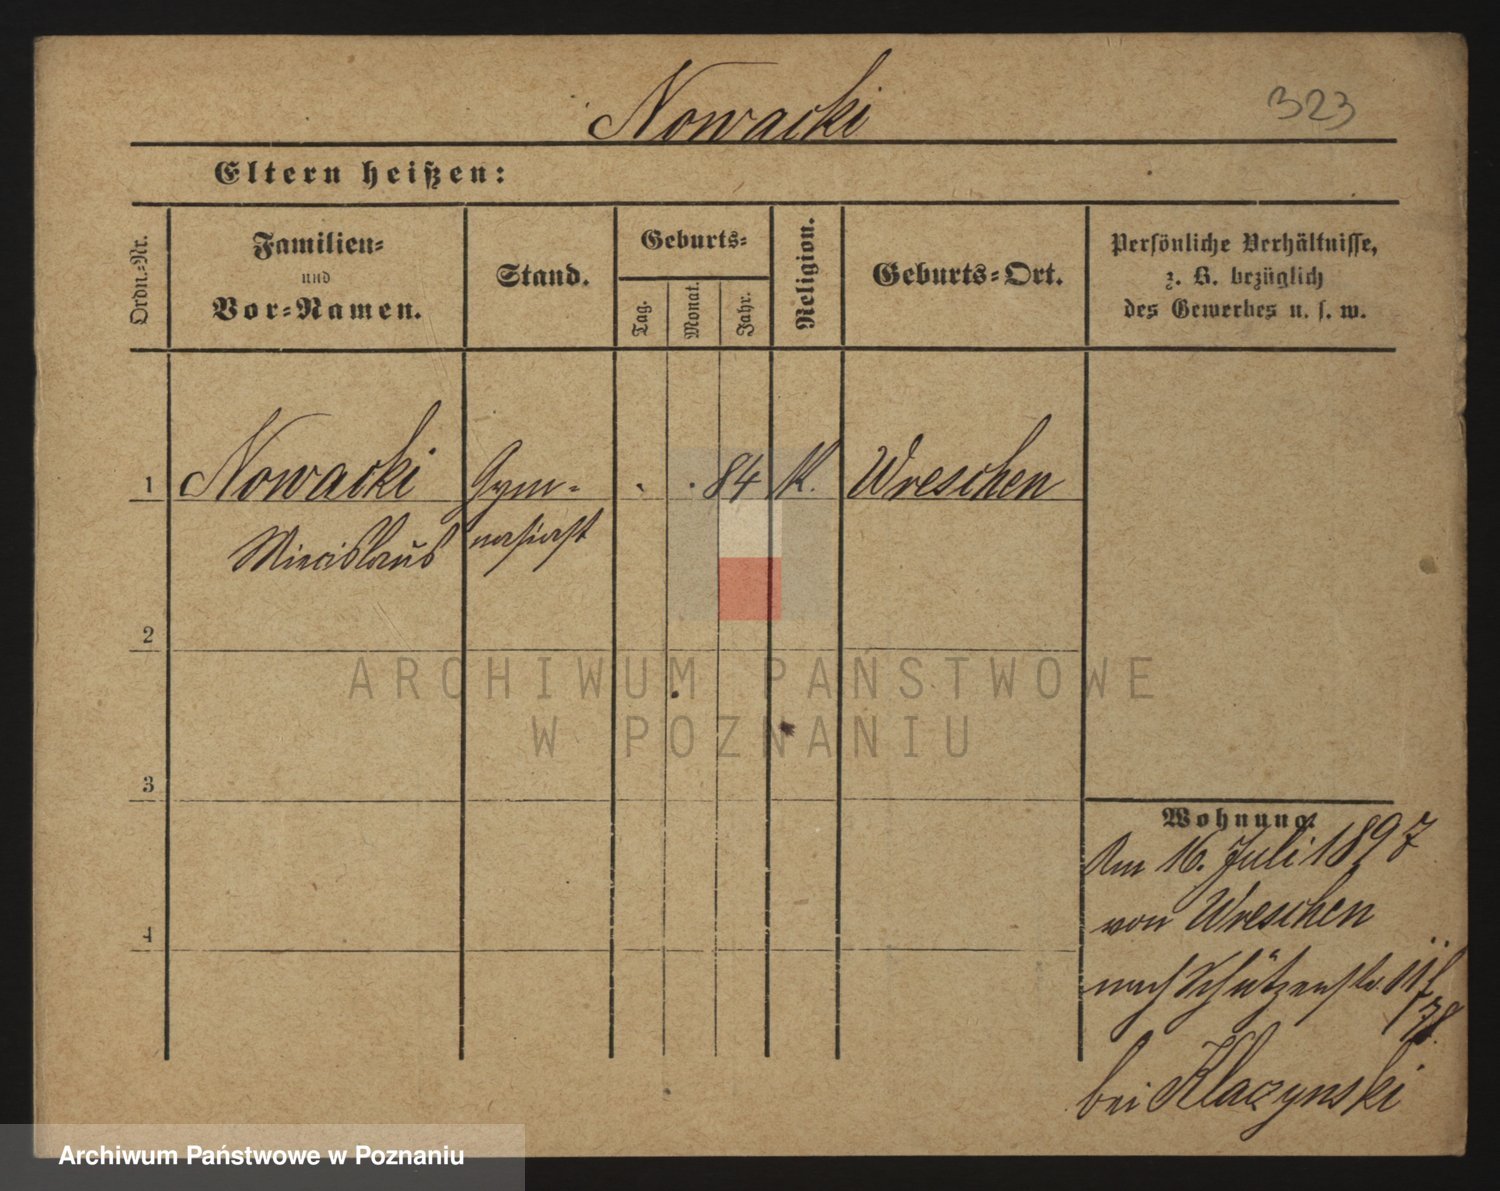 Nowacki
323
Eltern heißen:
Ordn.-Nr.
Familien-
und
Vor-Namen.
Stand.
Geburts-
Tag.
Monat.
Jahr.
Religion.
Geburts-Ort.
Persönliche Verhältnisse,
z. B. bezüglich
des Gewerbes u. s. w.
1 Nowacki Gym- . . 84 K. Wreschen
Miecislaus nasiast
2
3
4
Wohnung.
Am 16. Juli 1897
von Wreschen
nach Schützenstr.
bei Klaczynski
ARCHIWUM PAŃSTWOWE
W POZNANIU
Archiwum Państwowe w Poznaniu